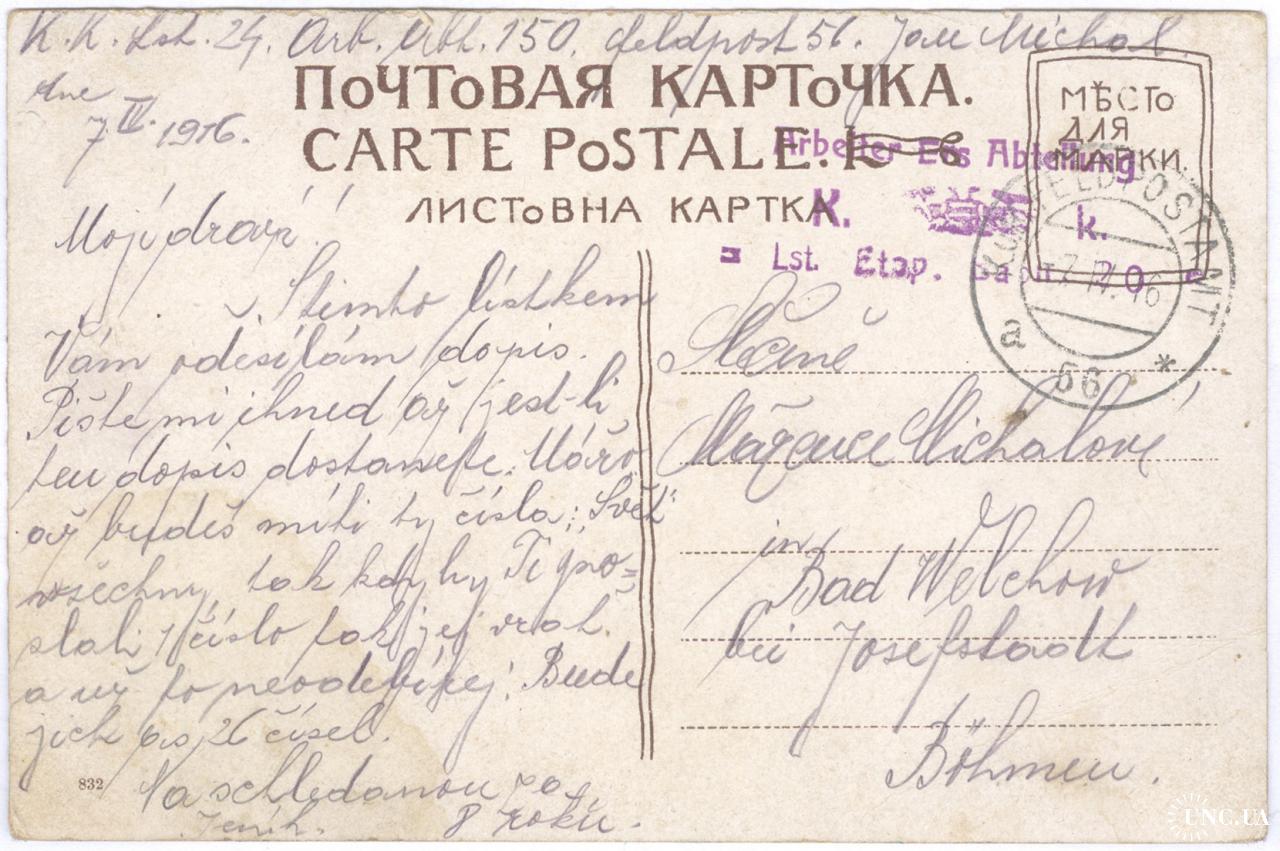 K. K. Lst. 24. Arb. Abt. 150. Feldpost 56. Jan Michal
dne
7. IV. 1916.
ПОЧТОВАЯ КАРТОЧКА.
CARTE POSTALE.
ЛИСТОВНА КАРТКА
МѢСТО
ДЛЯ
МАРКИ.
Arbeiter Ers Abteilung
K. k.
Lst. Etap.
K.u.K. FELDPOSTAMT
7. IV. 16
a 56 *
Moji drazí!
S tímto lístkem
Vám odesílám dopis.
Pište mi ihned až jest-li
ten dopis dostanete. Mářo
až budeš míti ty čísla: „Svět"
všechny, tak kdyby Ti po=
slali 1 číslo tak jej vrať.
a už to neodebírej. Bude
jich as 26 čísel.
Na schledanou za
8 roků.
Jeník.
832
Slečně
Mařence Michalové
in
Bad Welchow
bei Josefstadt
Böhmen.
UNC.UA